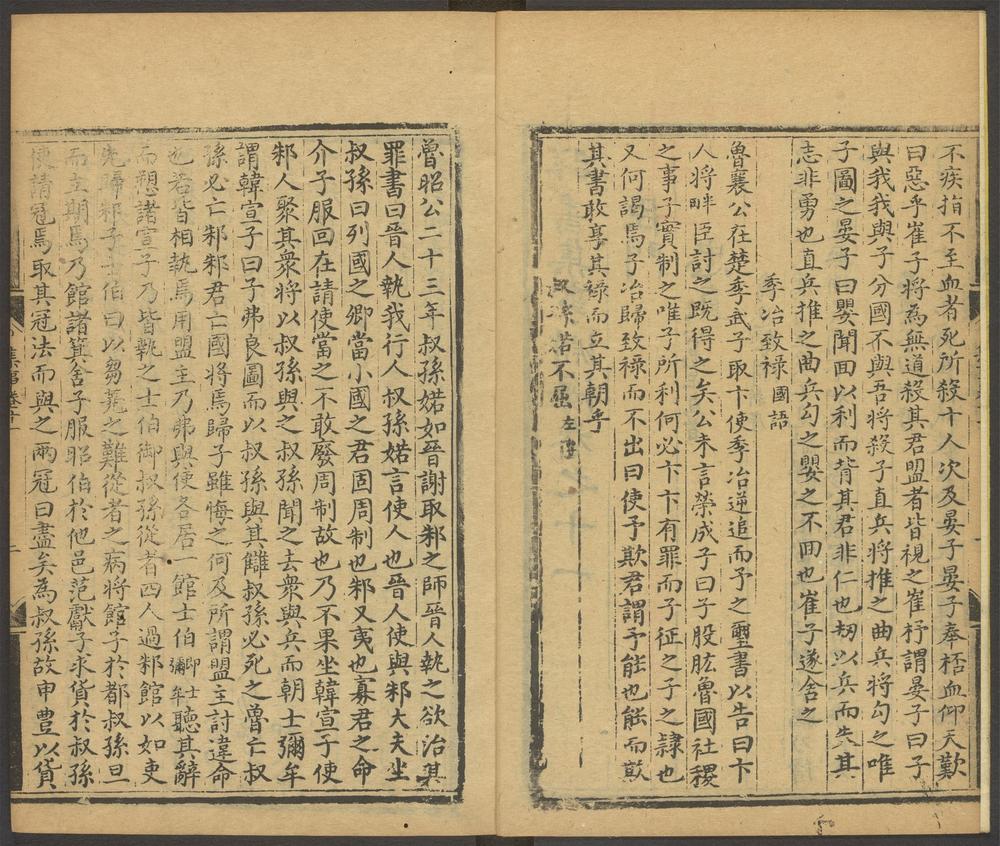 不疾指不至血者死所殺十人次及晏子晏子奉桮血仰天歎
曰惡乎崔子將為無道殺其君盟者皆視之崔杼謂晏子曰子
與我我與子分國不與吾將殺子直兵將推之曲兵將勾之唯
子圖之晏子曰嬰聞回以利而背其君非仁也劫以兵而失其
志非勇也直兵推之曲兵勾之嬰之不回也崔子遂舍之
季冶致祿 國語
魯襄公在楚季武子取卞使季冶逆追而予之璽書以告曰卞
人將畔臣討之既得之矣公未言榮成子曰子股肱魯國社稷
之事子實制之唯子所利何必卞卞有罪而子征之子之隸也
又何謁焉子冶歸致祿而不出曰使予欺君謂予能也能而欺
其君敢享其祿而立其朝乎
叔孫婼不屈 左傳
魯昭公二十三年叔孫婼如晉謝取邾之師晉人執之欲治其
罪書曰晉人執我行人叔孫婼言使人也晉人使與邾大夫坐
叔孫曰列國之卿當小國之君固周制也邾又夷也寡君之命
介子服回在請使當之不敢廢周制故也乃不果坐韓宣子使
邾人聚其衆將以叔孫與之叔孫聞之去衆與兵而朝士彌牟
謂韓宣子曰子弗良圖而以叔孫與其讎叔孫必死之魯亡叔
孫必亡邾邾君亡國將焉歸子雖悔之何及所謂盟主討違命
也若皆相執焉用盟主乃弗與使各居一館士伯 卿士彌牟 聽其辭
而愬諸宣子乃皆執之士伯御叔孫從者四人過邾館以如吏
先歸邾子士伯曰以芻蕘之難從者之病將館子於都叔孫旦
而立期焉乃館諸箕舍子服昭伯於他邑范獻子求貨於叔孫
使請冠焉取其冠法而與之兩冠曰盡矣為叔孫故申豊以貨